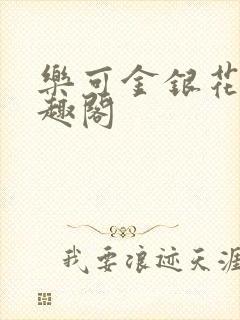 樂可金銀花
趣閣
我要浪迹天涯